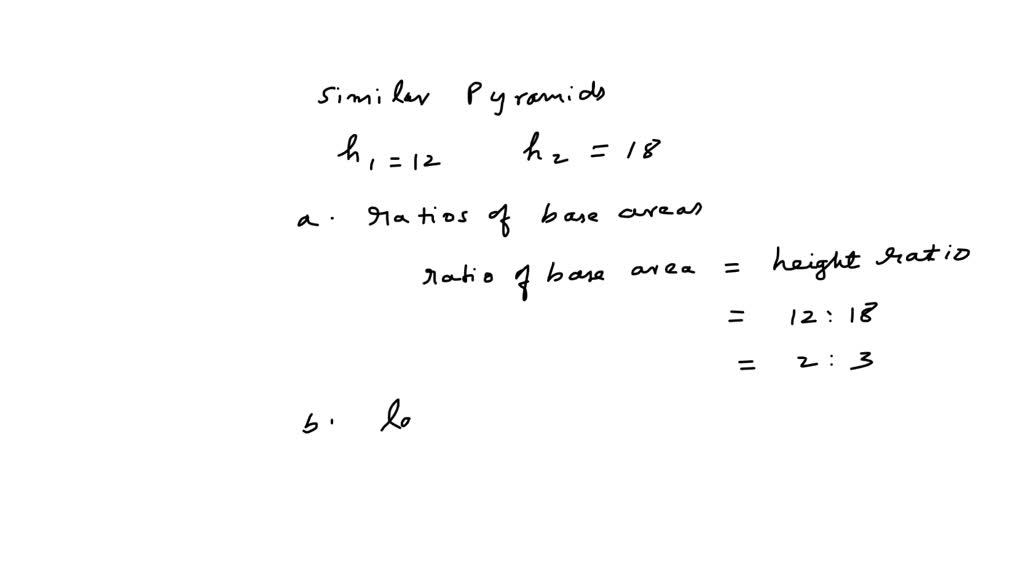 Similar Pyramids
h₁ = 12 h₂ = 18
a. ratios of base areas
ratio of base area = height ratio
= 12 : 18
= 2 : 3
b. lo